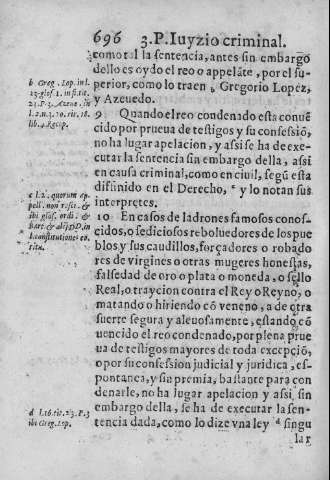 696 3.P. Iuyzio criminal.
como tal la sentencia, antes sin embargo
dello es oydo el reo o appelāte, por el su-
perior, como lo traen b Gregorio Lopez,
y Azeuedo.
9 Quando el reo condenado esta conuē
cido por prueua de testigos y su confessiō,
no ha lugar apelacion, y assi se ha de exe-
cutar la sentencia sin embargo della, assi
en causa criminal, como en ciuil, segū esta
difinido en el Derecho, c y lo notan sus
interpretes.
10 En casos de ladrones famosos conos-
cidos, o sediciosos reboluedores de los pue
blos y sus caudillos, forçadores o robado
res de virgines o otras mugeres honestas,
falsedad de oro o plata o moneda, o sello
Real, o trayciοn contra el Rey o Reyno, o
matando o hiriendo cō veneno, a de otra
suerte segura y aleuosamente, estando cō
uencido el reo condenado, por plena prue
ua de testigos mayores de toda excepciō,
o por su confession judicial y juridica, es-
pontanea, y sin premia, bastante para con
denarle, no ha lugar apelacion y assi sin
embargo della, se ha de executar la sen-
tencia dada, como lo dize vna ley d singu
lar
b Greg. Lop. in l.
23. glos. 1. in fi. tit.
23. P. 3. Azeue. in
l. 2. n. 3. to. tit. 18.
lib. 4. Recop.
c l. 2. quorum ap
pell. non reci. &
ibi glos. ordi. &
Bart. & alij DD. in
l. constitutiones eo.
titu.
d l. 16. tit. 23. P. 3
ibi Greg. Lop.